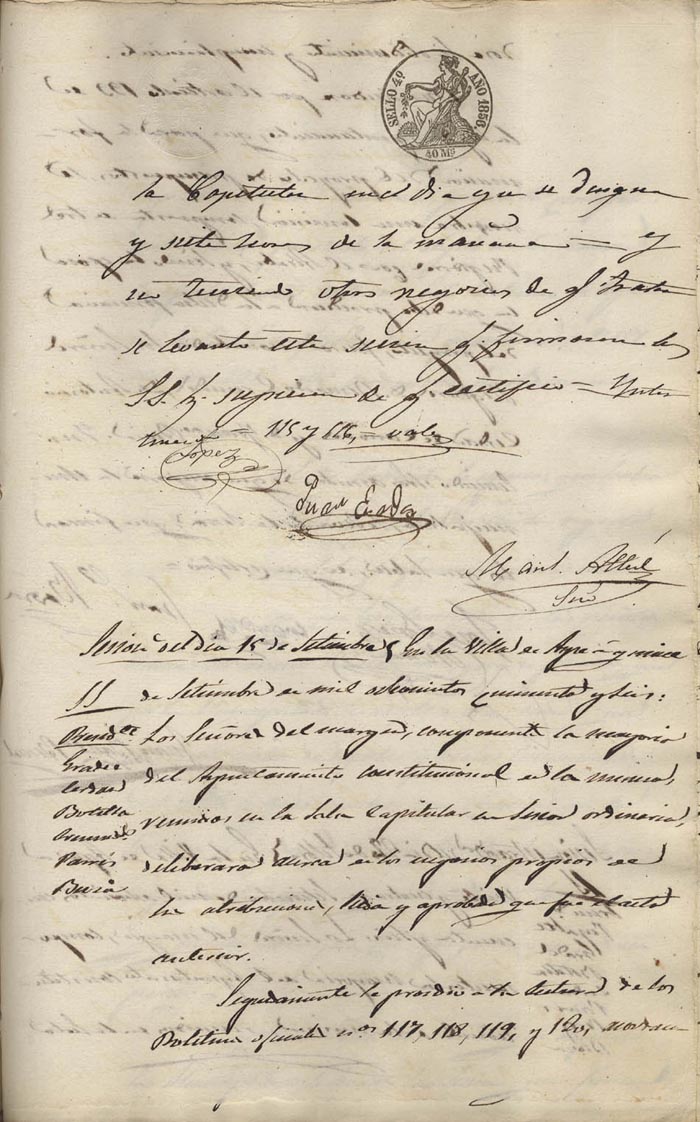 SELLO 4º AÑO 1856.
40 Ms
la Capitular en el dia que se designa
y siete horas de la mañana = y
no teniendo otros negocios de q.l tratar
se levantó esta sesion q. firmaron los
SS. de q. certifico = Entre
= 115 y 116, = vale
Lopez
Juan
Man.l
Srio
Sesion del dia 15 de Setiembre En la Villa de a quince
SS. de Setiembre de mil ochocientos cincuenta y seis:
Presid.te Los Señores del margen, componente la mayoria
del Ayuntamiento constitucional de la misma,
Botella reunidos en la Sala Capitular en Sesion ordinaria,
deliberaron acerca de los negocios propios de
su atribucion, leida y aprobada que fue el acta
anterior.
Seguidamente se procedió a la lectura de los
Boletines oficiales n.os 117, 118, 119, y 120, acordaron